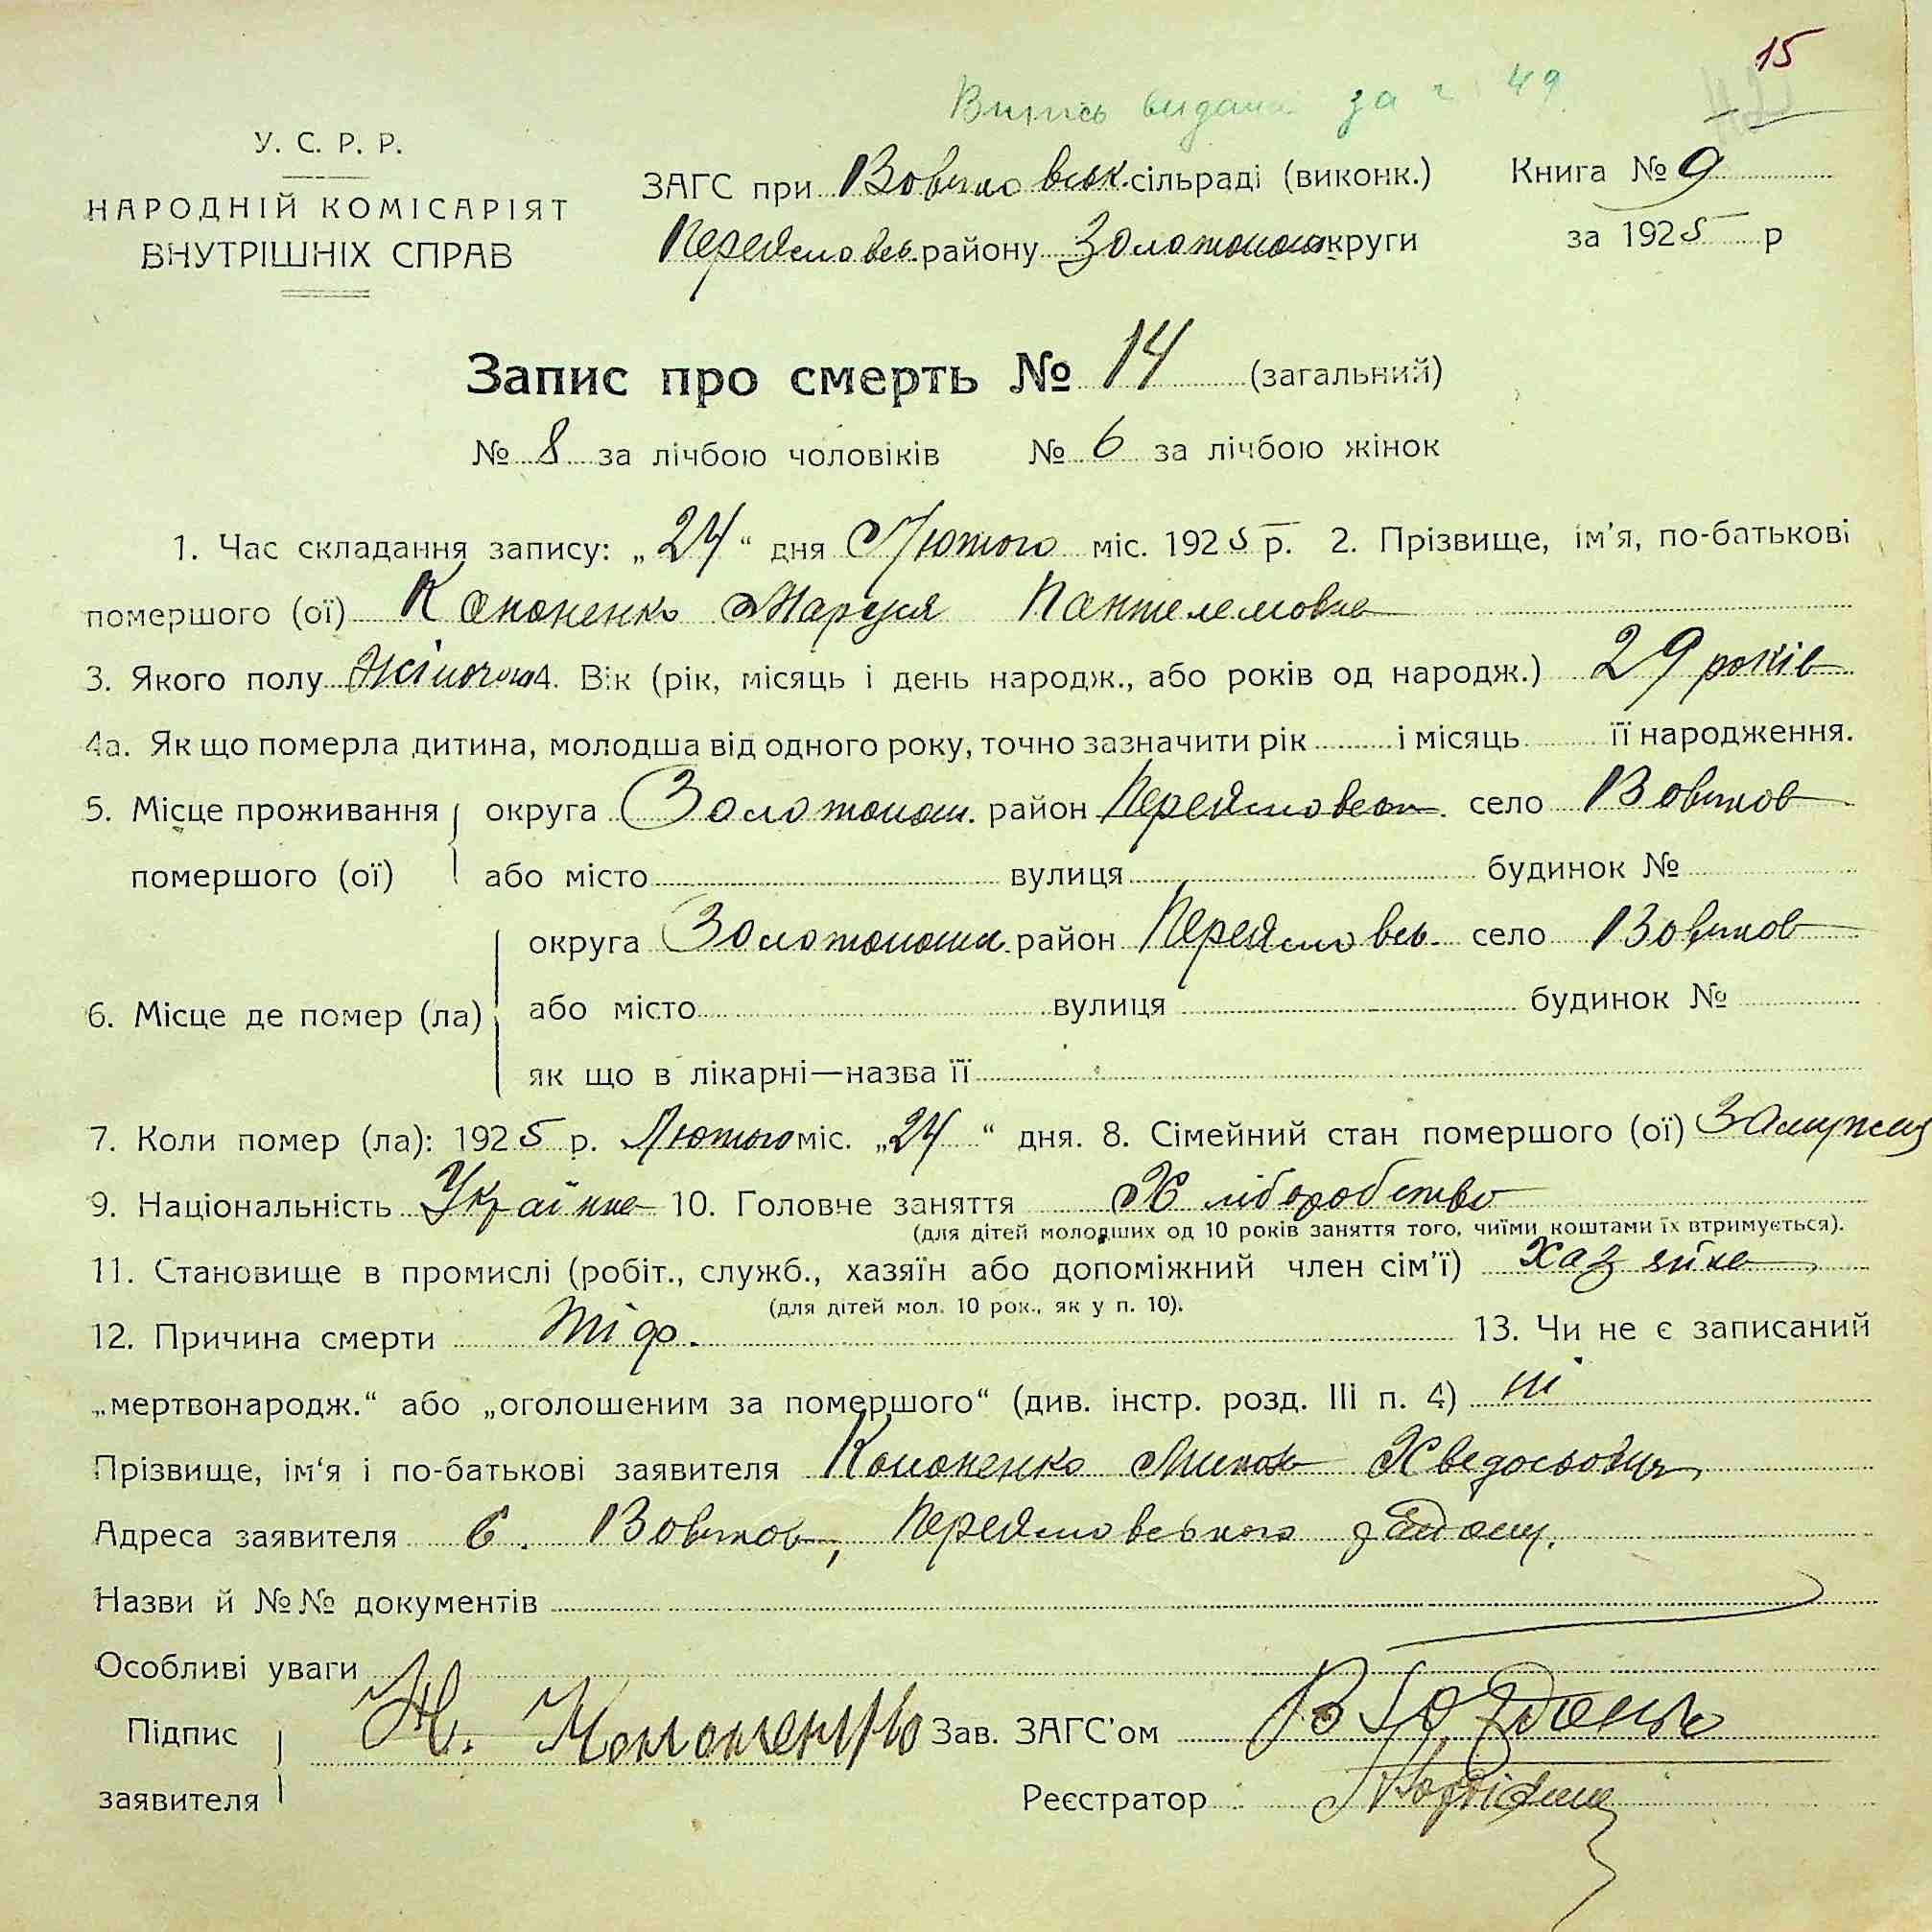 15
Випись видана за № 49
У. С. Р. Р.
НАРОДНІЙ КОМІСАРІЯТ
ВНУТРІШНІХ СПРАВ
ЗАГС при Вовчковськ. сільраді (виконк.)
Книга № 9
Переяславськ. району Золотоношськ округи
за 1925 р
Запис про смерть № 14 (загальний)
№ 8 за лічбою чоловіків № 6 за лічбою жінок
1. Час складання запису: „24“ дня Лютого міс. 1925 р. 2. Прізвище, ім'я, по-батькові
помершого (ої) Кононенко Маруся Пантелемовна
3. Якого полу жіночого 4. Вік (рік, місяць і день народж., або років од народж.) 29 років
4а. Як що померла дитина, молодша від одного року, точно зазначити рік і місяць її народження.
5. Місце проживання округа Золотонош. район Переяславськ. село Вовчков
помершого (ої) або місто вулиця будинок №
округа Золотонош. район Переяславсь. село Вовчков
6. Місце де помер (ла) або місто вулиця будинок №
як що в лікарні—назва її
7. Коли помер (ла): 1925 р. Лютого міс. „24“ дня. 8. Сімейний стан помершого (ої) Замужня
9. Національність Українка 10. Головне заняття Хліборобство
(для дітей молодших од 10 років заняття того, чиїми коштами їх втримується).
11. Становище в промислі (робіт., служб., хазяїн або допоміжний член сім'ї) хазяйка
(для дітей мол. 10 рок., як у п. 10).
12. Причина смерти тіф. 13. Чи не є записаний
„мертвонародж.“ або „оголошеним за помершого“ (див. інстр. розд. III п. 4) ні
Прізвище, ім'я і по-батькові заявителя Кононенко Хведосович
Адреса заявителя с. Вовчков, Переяславського району.
Назви й №№ документів
Особливі уваги
Підпис Кононенко Зав. ЗАГС'ом
заявителя Реєстратор